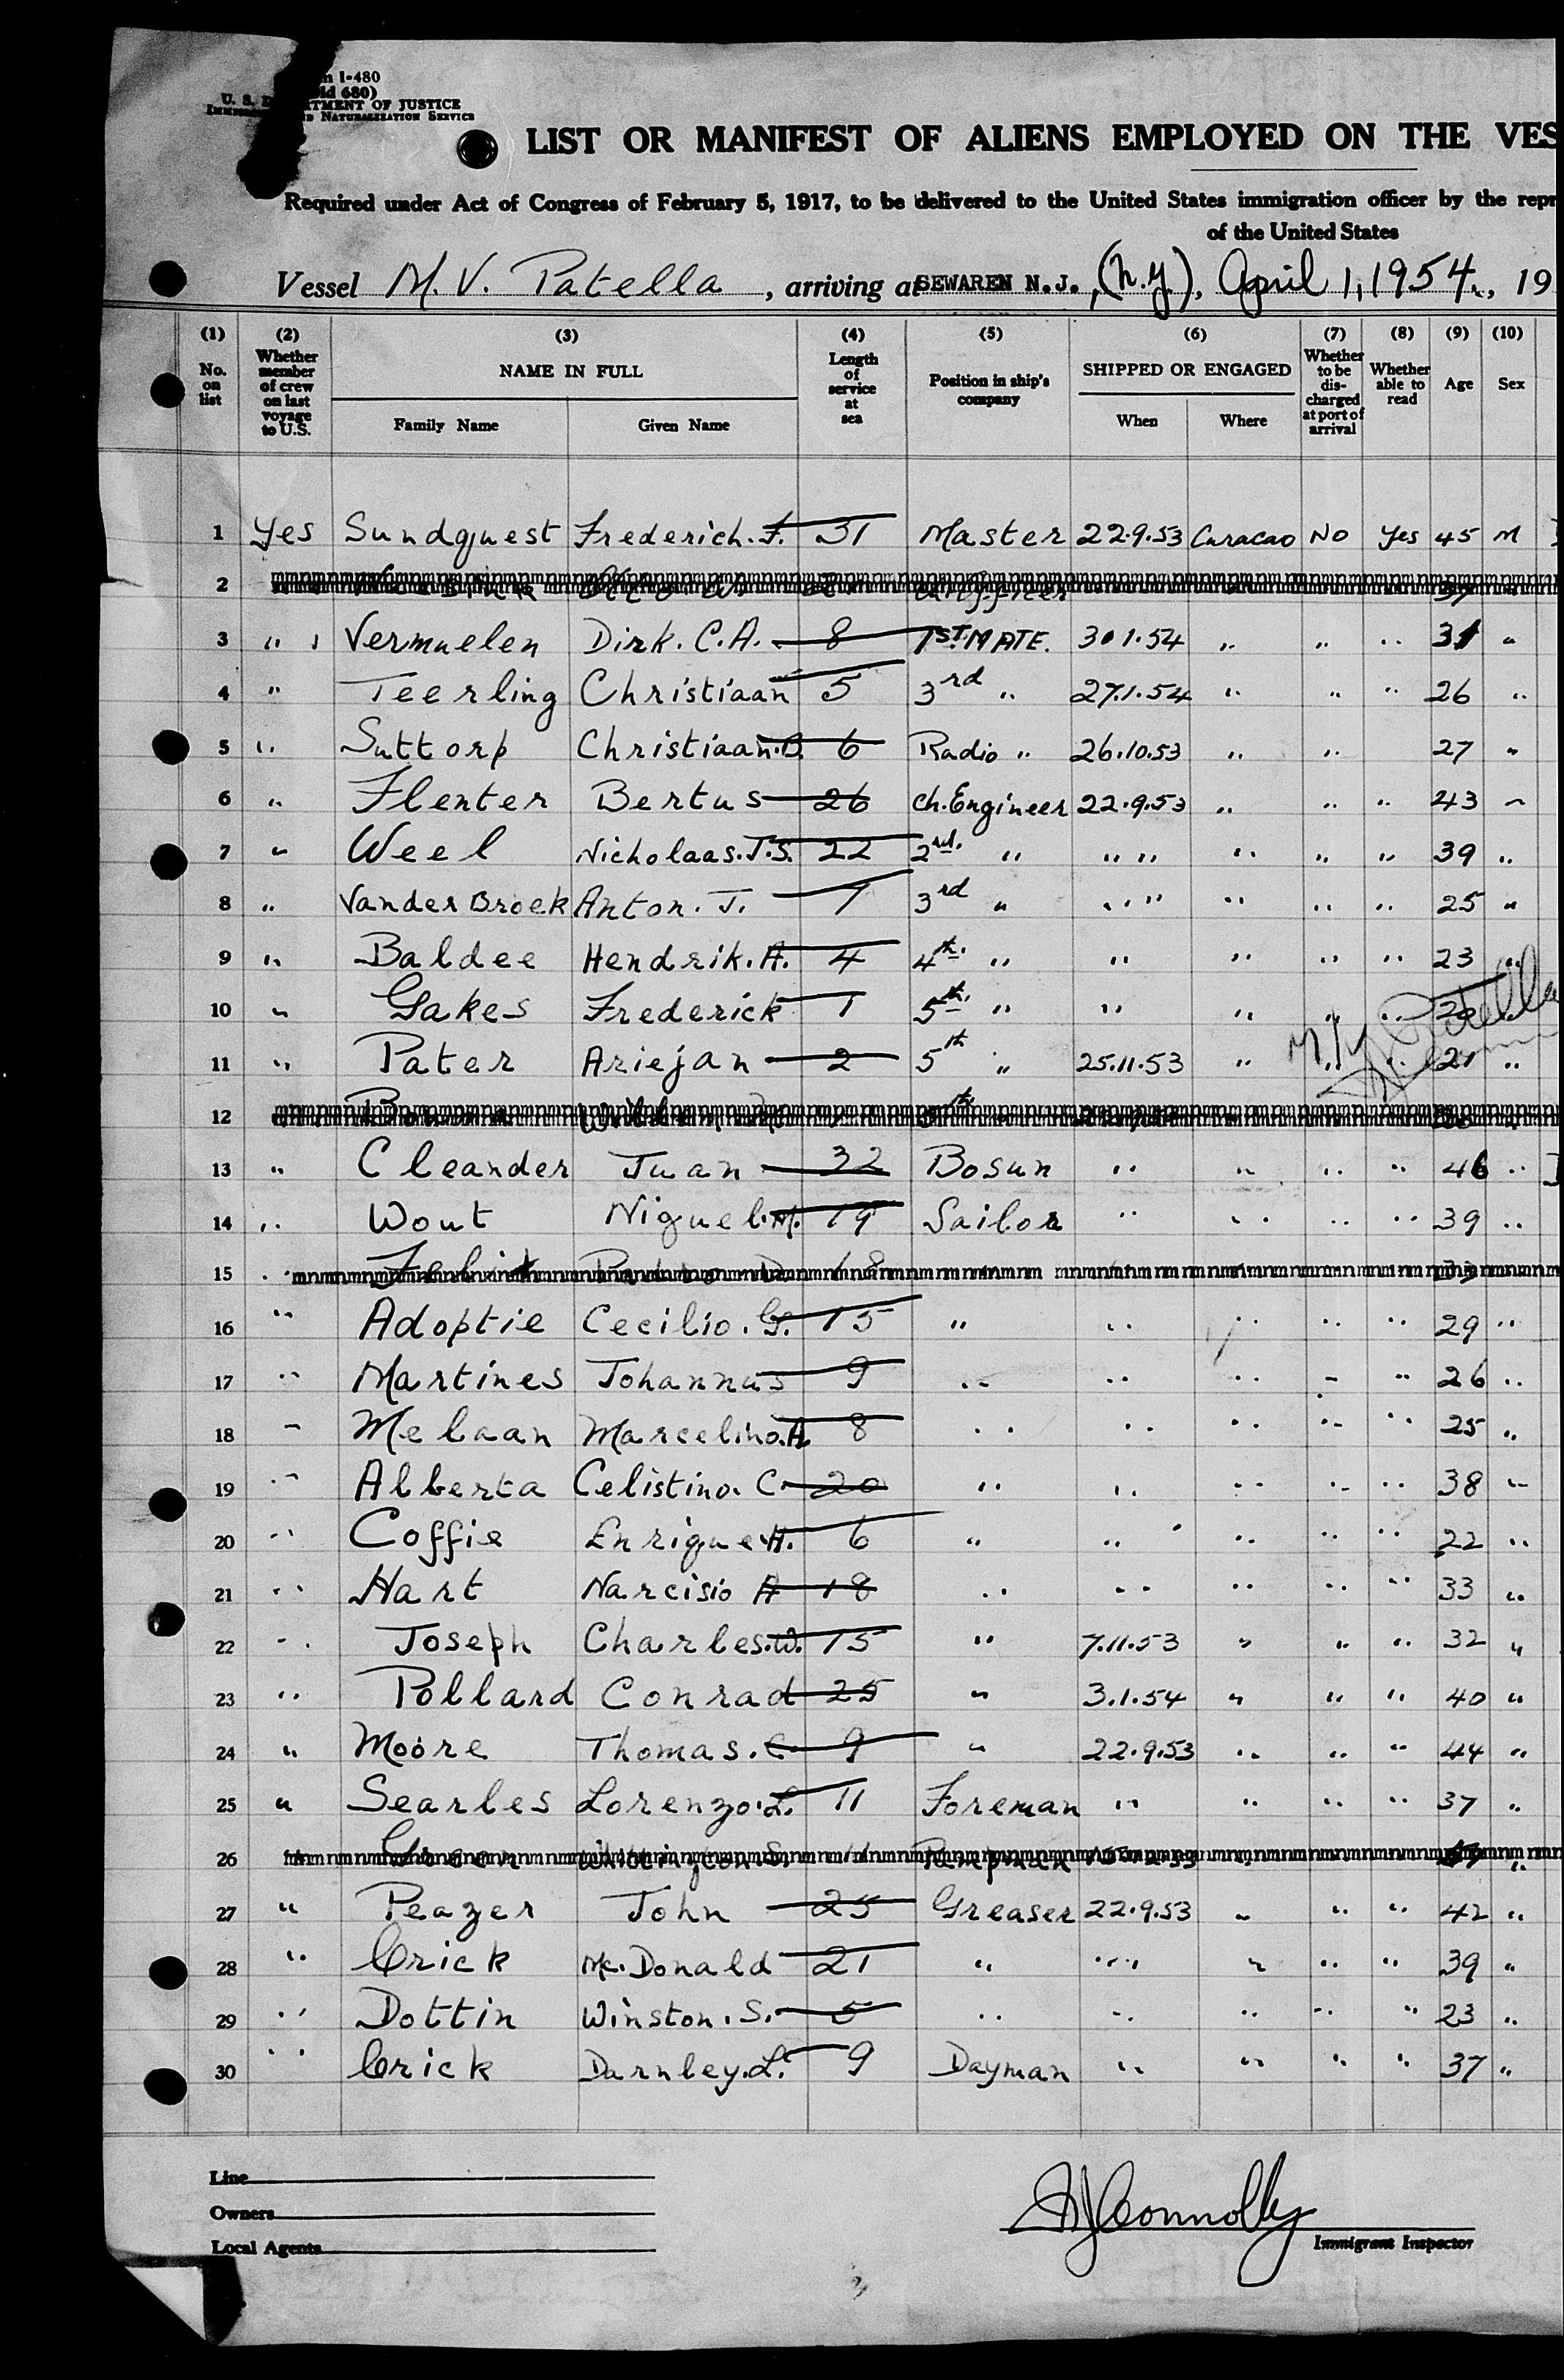 m I-480
ld 680)
U. S. D TMENT OF JUSTICE
IMMIG D NATURALIZATION SERVICE
LIST OR MANIFEST OF ALIENS EMPLOYED ON THE VES
Required under Act of Congress of February 5, 1917, to be delivered to the United States immigration officer by the repr
of the United States
Vessel M. V. Patella, arriving at SEWAREN N.J., (N.Y.), April 1, 1954, 19
(1) (2) (3) (4) (5) (6) (7) (8) (9) (10)
No. on list Whether member of crew on last voyage to U.S. NAME IN FULL Length of service at sea Position in ship's company SHIPPED OR ENGAGED Whether to be discharged at port of arrival Whether able to read Age Sex
Family Name Given Name When Where
1 Yes Sundquest Frederich. F. 31 Master 22.9.53 Curacao No Yes 45 M
2
3 " Vermuelen Dirk. C.A. 8 1ST MATE. 30 1.54 " " " 31 "
4 " Teerling Christiaan 5 3rd " 27.1.54 " " " 26 "
5 " Suttorp Christiaan.B. 6 Radio " 26.10.53 " " 27 "
6 " Flenter Bertus 26 Ch. Engineer 22.9.53 " " " 43 "
7 " Weel Nicholaas. J.S. 22 2nd. " " " " " " 39 "
8 " Vander Broek Anton. J. 7 3rd " " " " " " 25 "
9 " Baldee Hendrik. A. 4 4th. " " " " " 23 "
10 " Gakes Frederick 1 5th. " " " " "
11 " Pater Ariejan 2 5th " 25.11.53 " " " 21 "
12 5th
13 " Cleander Juan 32 Bosun " " " " 46 "
14 " Wout Niguel. M. 19 Sailor " " " " 39 "
15
16 " Adoptie Cecilio. G. 15 " " " " " 29 "
17 " Martines Johannus 9 " " " " " 26 "
18 " Melaan Marcelino. A. 8 " " " " " 25 "
19 " Alberta Celistino. C. 20 " " " " " 38 "
20 " Coffie Enrique. H. 6 " " " " " 22 "
21 " Hart Narcisio A 18 " " " " " 33 "
22 " Joseph Charles. W. 15 " 7.11.53 " " " 32 "
23 " Pollard Conrad 25 " 3.1.54 " " " 40 "
24 " Moore Thomas. C. 9 " 22.9.53 " " " 44 "
25 " Searles Lorenzo. L. 11 Foreman " " " " 37 "
26 Pumpman
27 " Peazer John 25 Greaser 22.9.53 " " " 42 "
28 " Crick Mc. Donald 21 " " " " " 39 "
29 " Dottin Winston. S. 5 " " " " " 23 "
30 " Crick Darnley. L. 9 Dayman " " " " 37 "
Line
Owners
Local Agents
Connolly
Immigrant Inspector